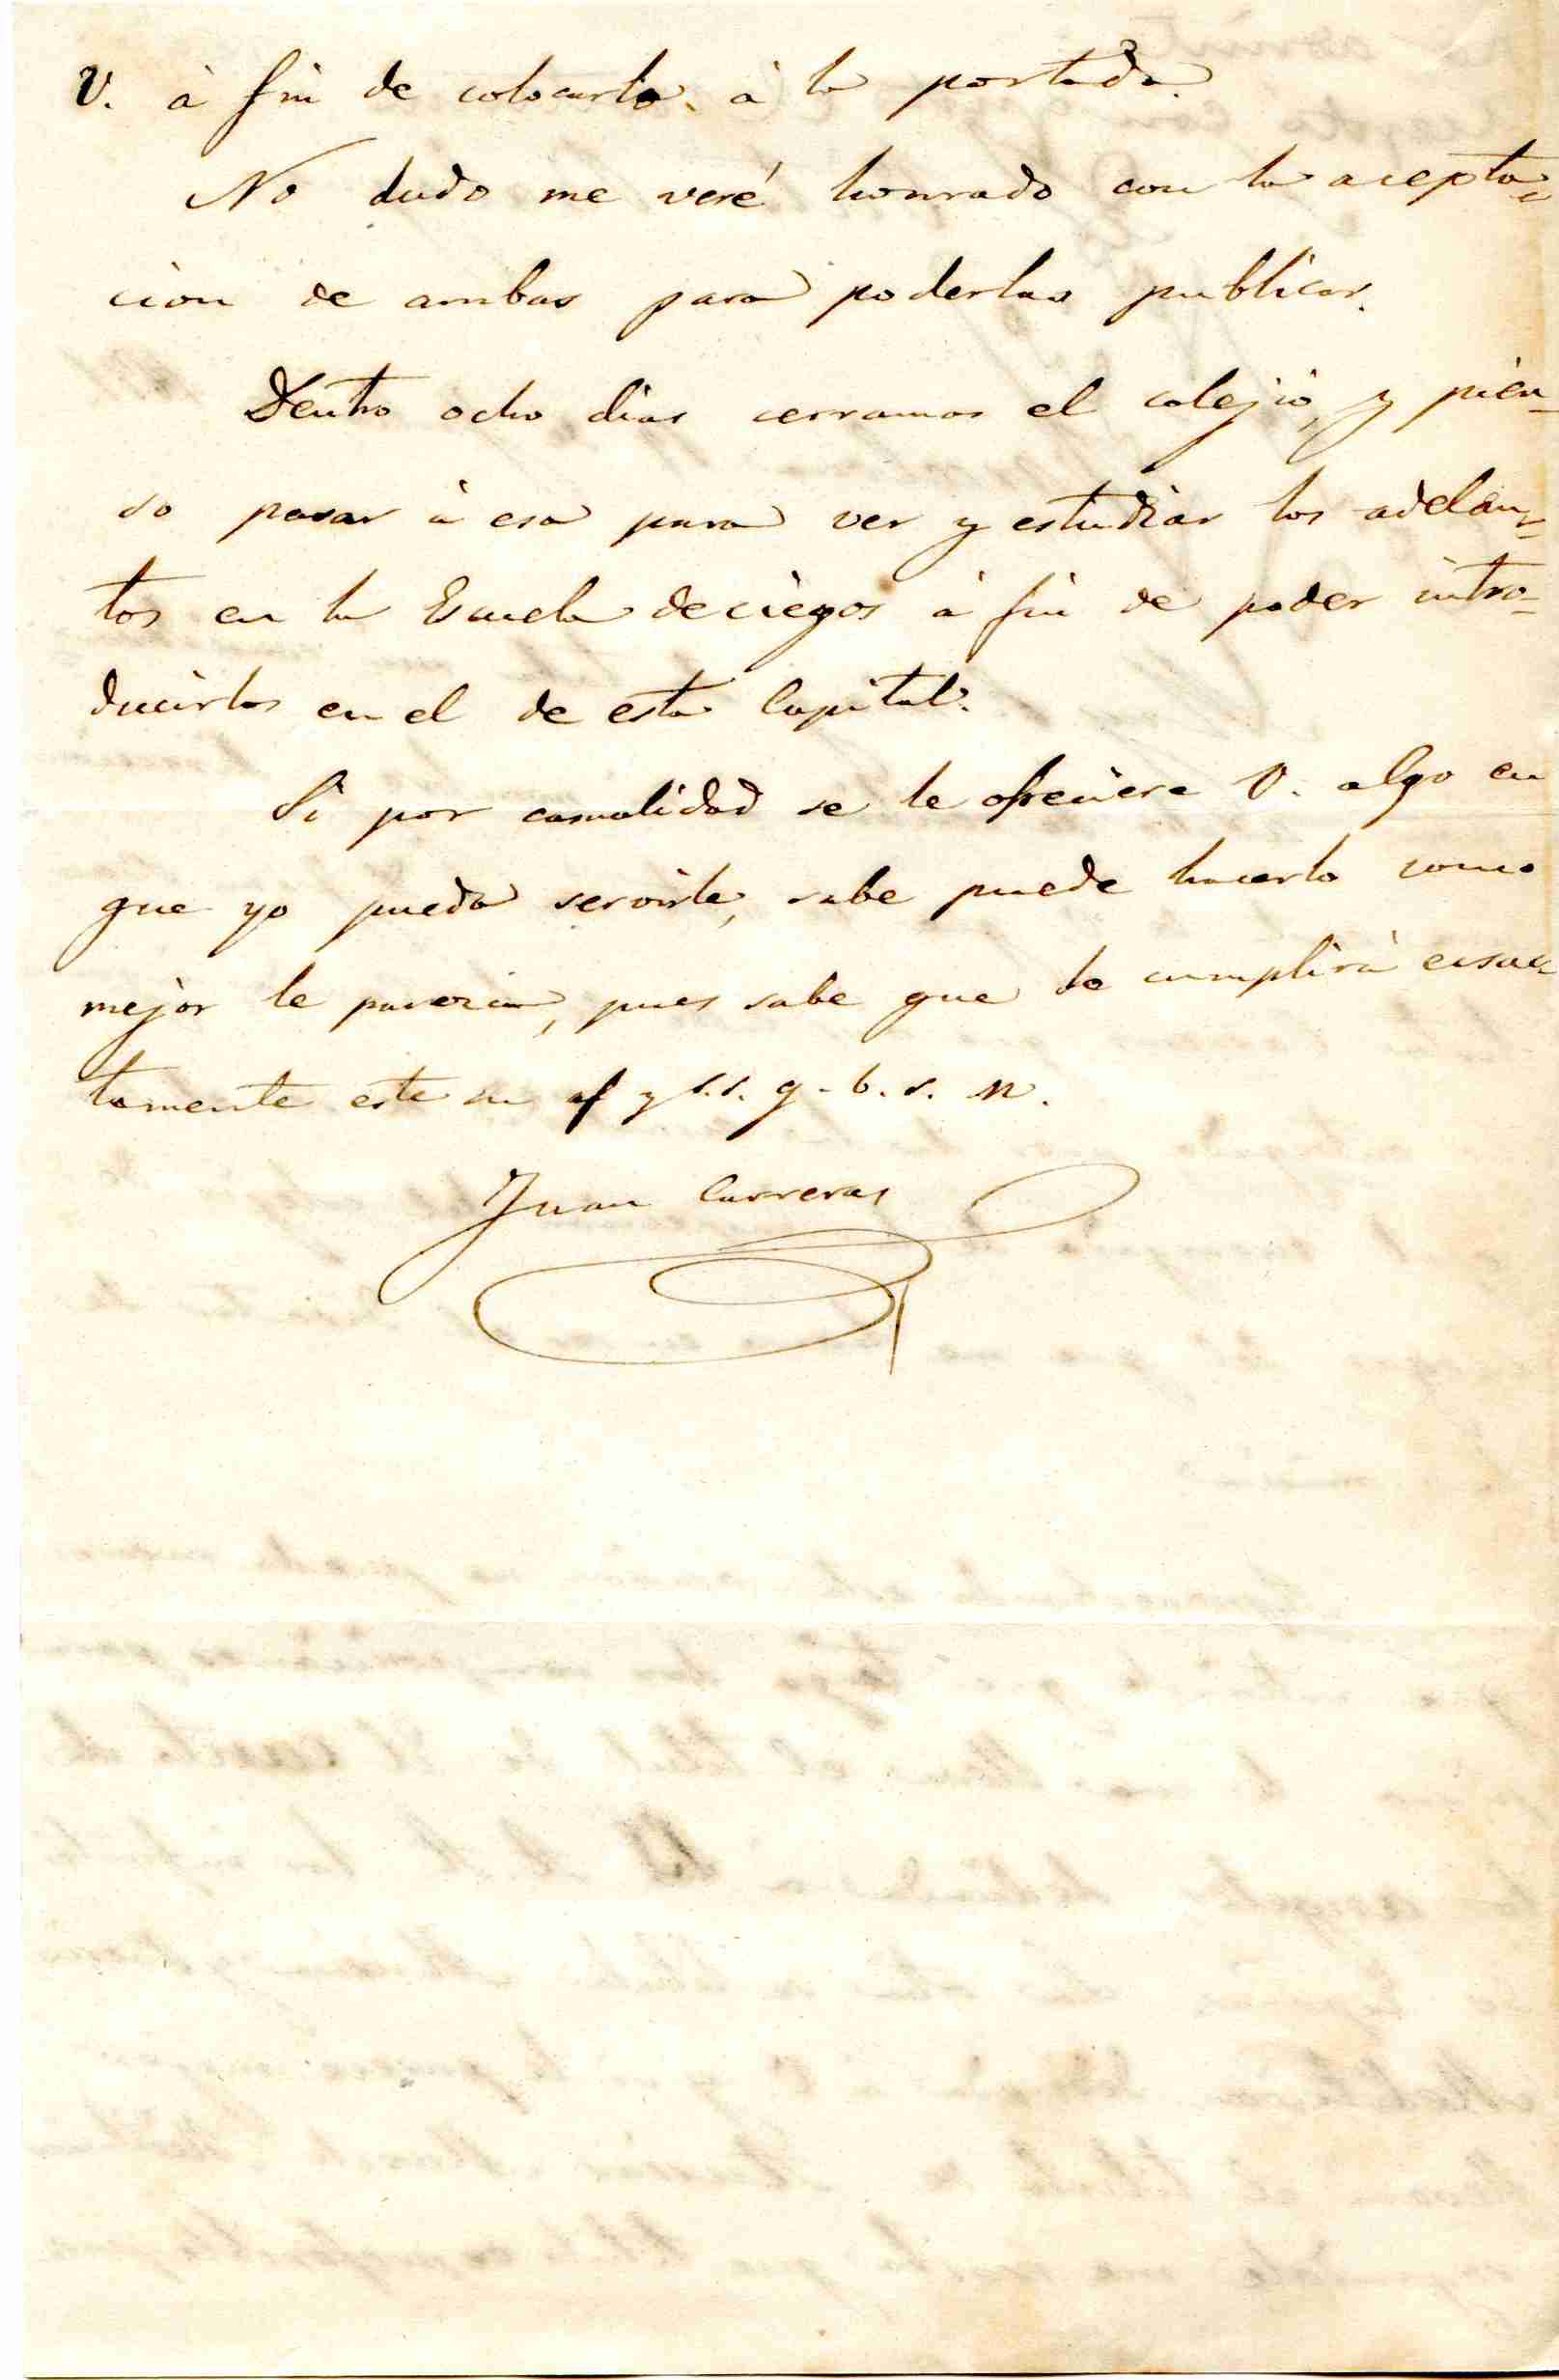 V. à fin de colocarla à la portada.
No dudo me veré honrado con la acepta=
cion de ambas para poderlas publicar.
Dentro ocho dias cerramos el colejio, y pien-
so pasar à esa para ver y estudiar los adelan=
tos en la Escuela de ciegos à fin de poder intro=
ducirlos en el de esta Capital.
Si por casualidad se le ofreciera V. algo en
que yo pueda servirle, sabe puede hacerlo como
mejor le parezca, pues sabe que lo cumplirà ecsac=
tamente este su af y s.s. q. b. s. m.
Juan Carreras